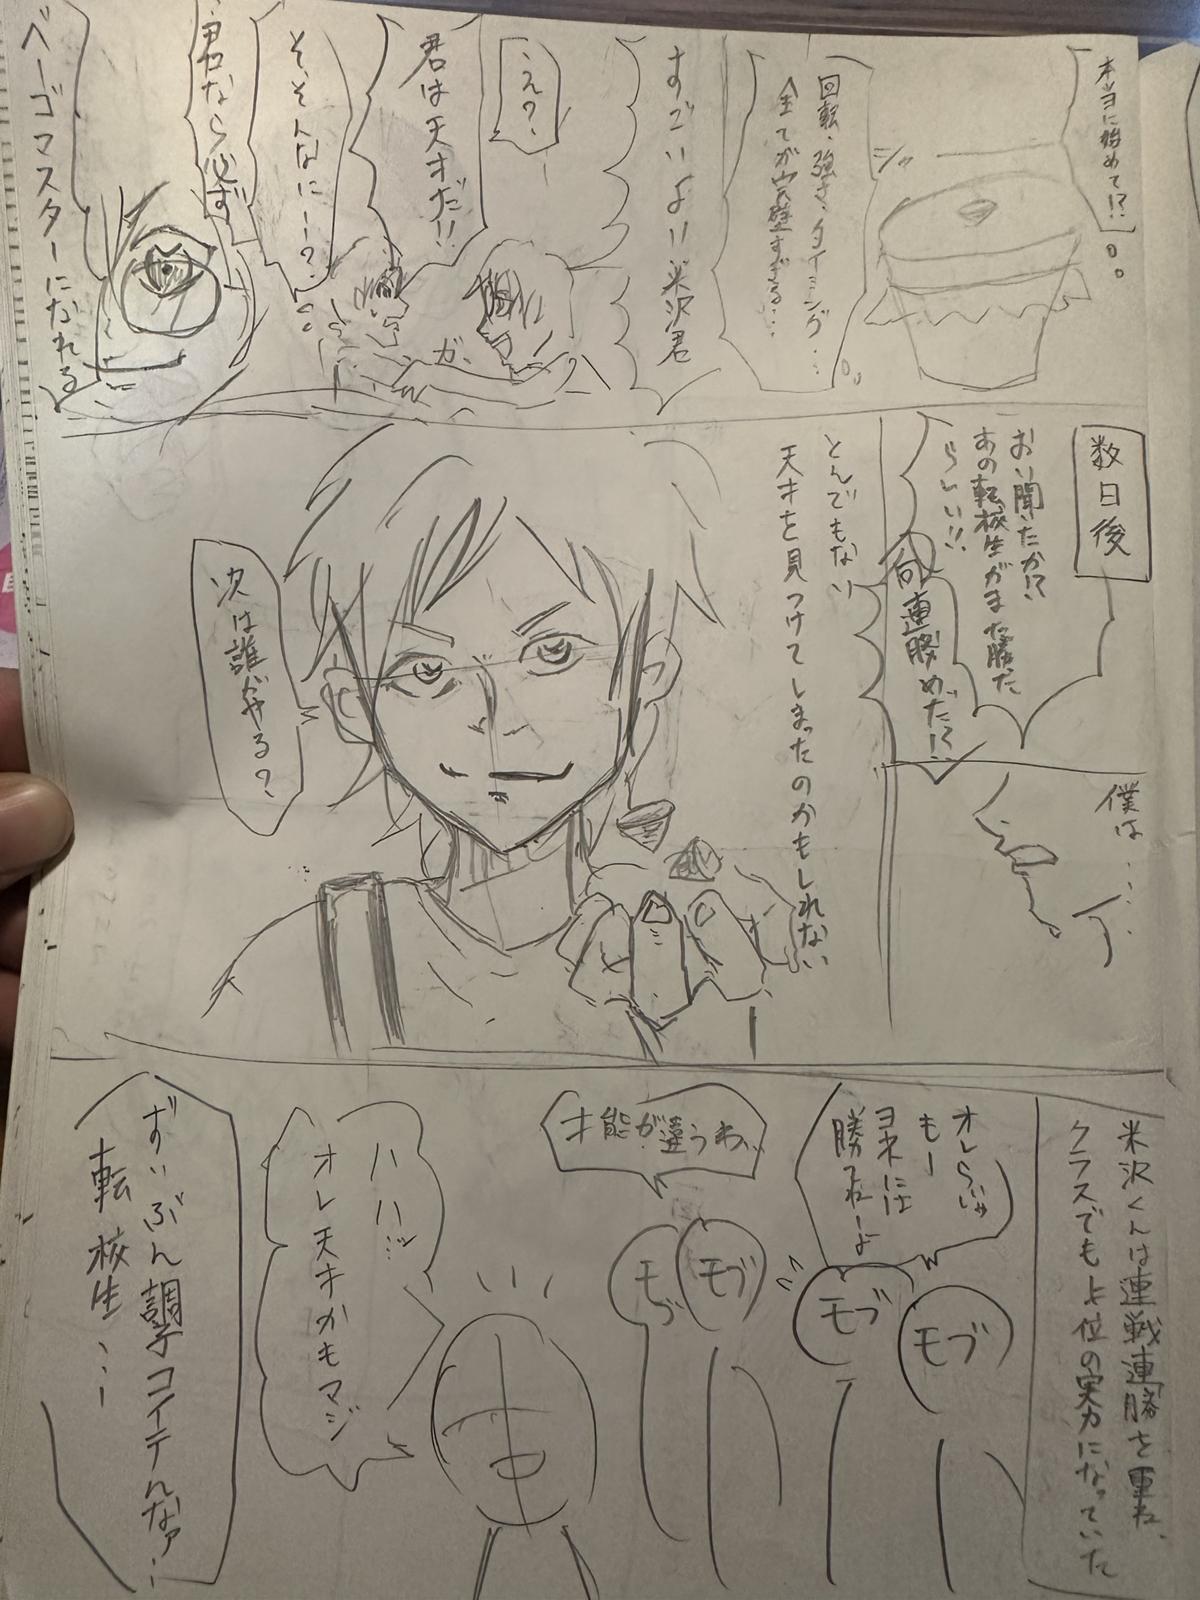 本当に始めて!?
シャッ
回転、強さ、タイミング…
全てが完璧すぎる…
すごいよ!!米沢君
え?
君は天才だ!!
ガッ
そ、そんなにー?
君なら必ず
ベーゴマスターになれる
数日後
おい聞いたか!?
あの転校生がまた勝った
らしい!!
何連勝めだ!?
僕は…
とんでもない
天才を見つけてしまったのかもしれない
次は誰がやる?
米沢くんは連戦連勝を重ね、
クラスでも上位の実力になっていた
オレらじゃ
もー
ヨネには
勝てねーよ
モブ
モブ
才能が違うわ、
モブ
モブ
ハハッ
オレ天才かもマジ
ずいぶん調子コイテんなァ…
転校生…